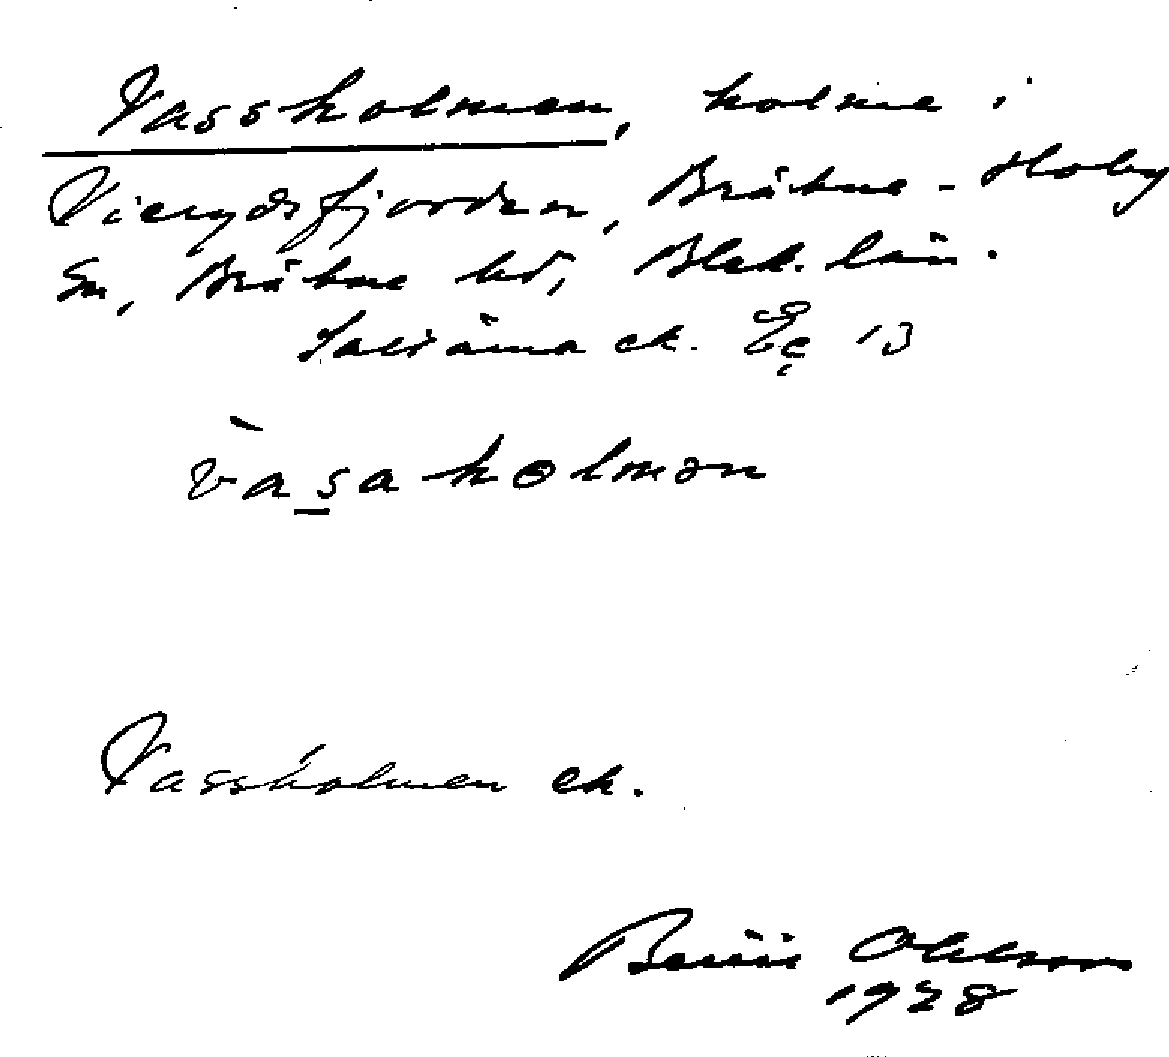 Vassholmen, holme i
Vierydsfjorden, Bräkne-Hoby
sn, Bräkne hd, Blek. län.
Saltärna ek. Eç 13
vàsaholmən
Vassholmen ek.
Bengt Ohlsson
1928